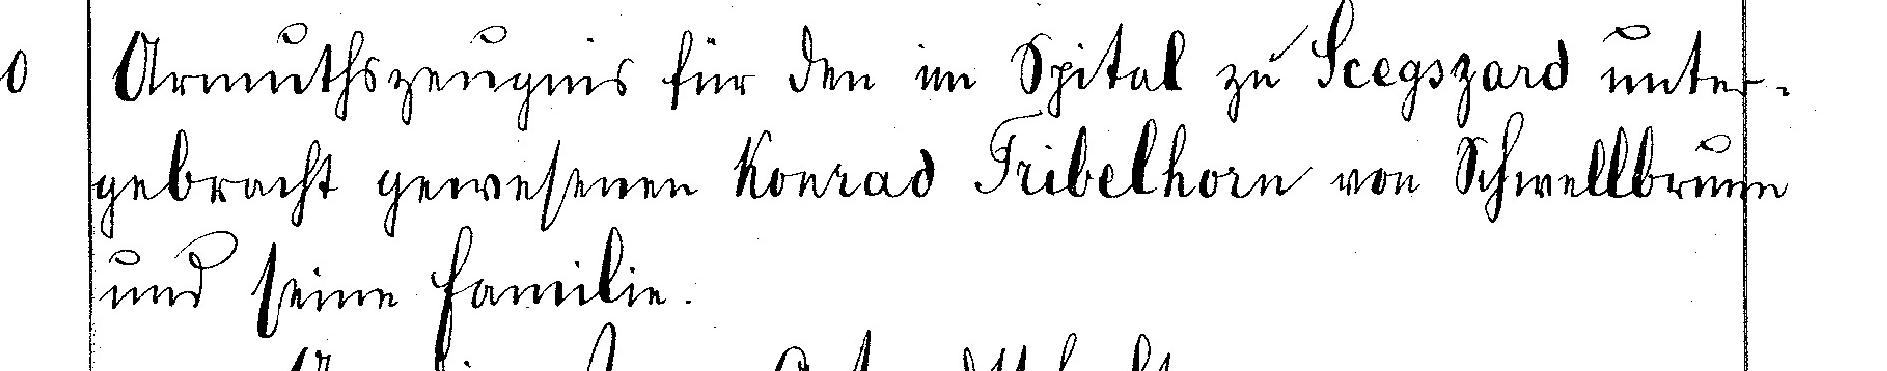 0 Armuthszeugnis für den im Spital zu Scegszard unter-
gebracht gewesenen Konrad Tribelhorn von Schwellbrunn
und seine Familie.